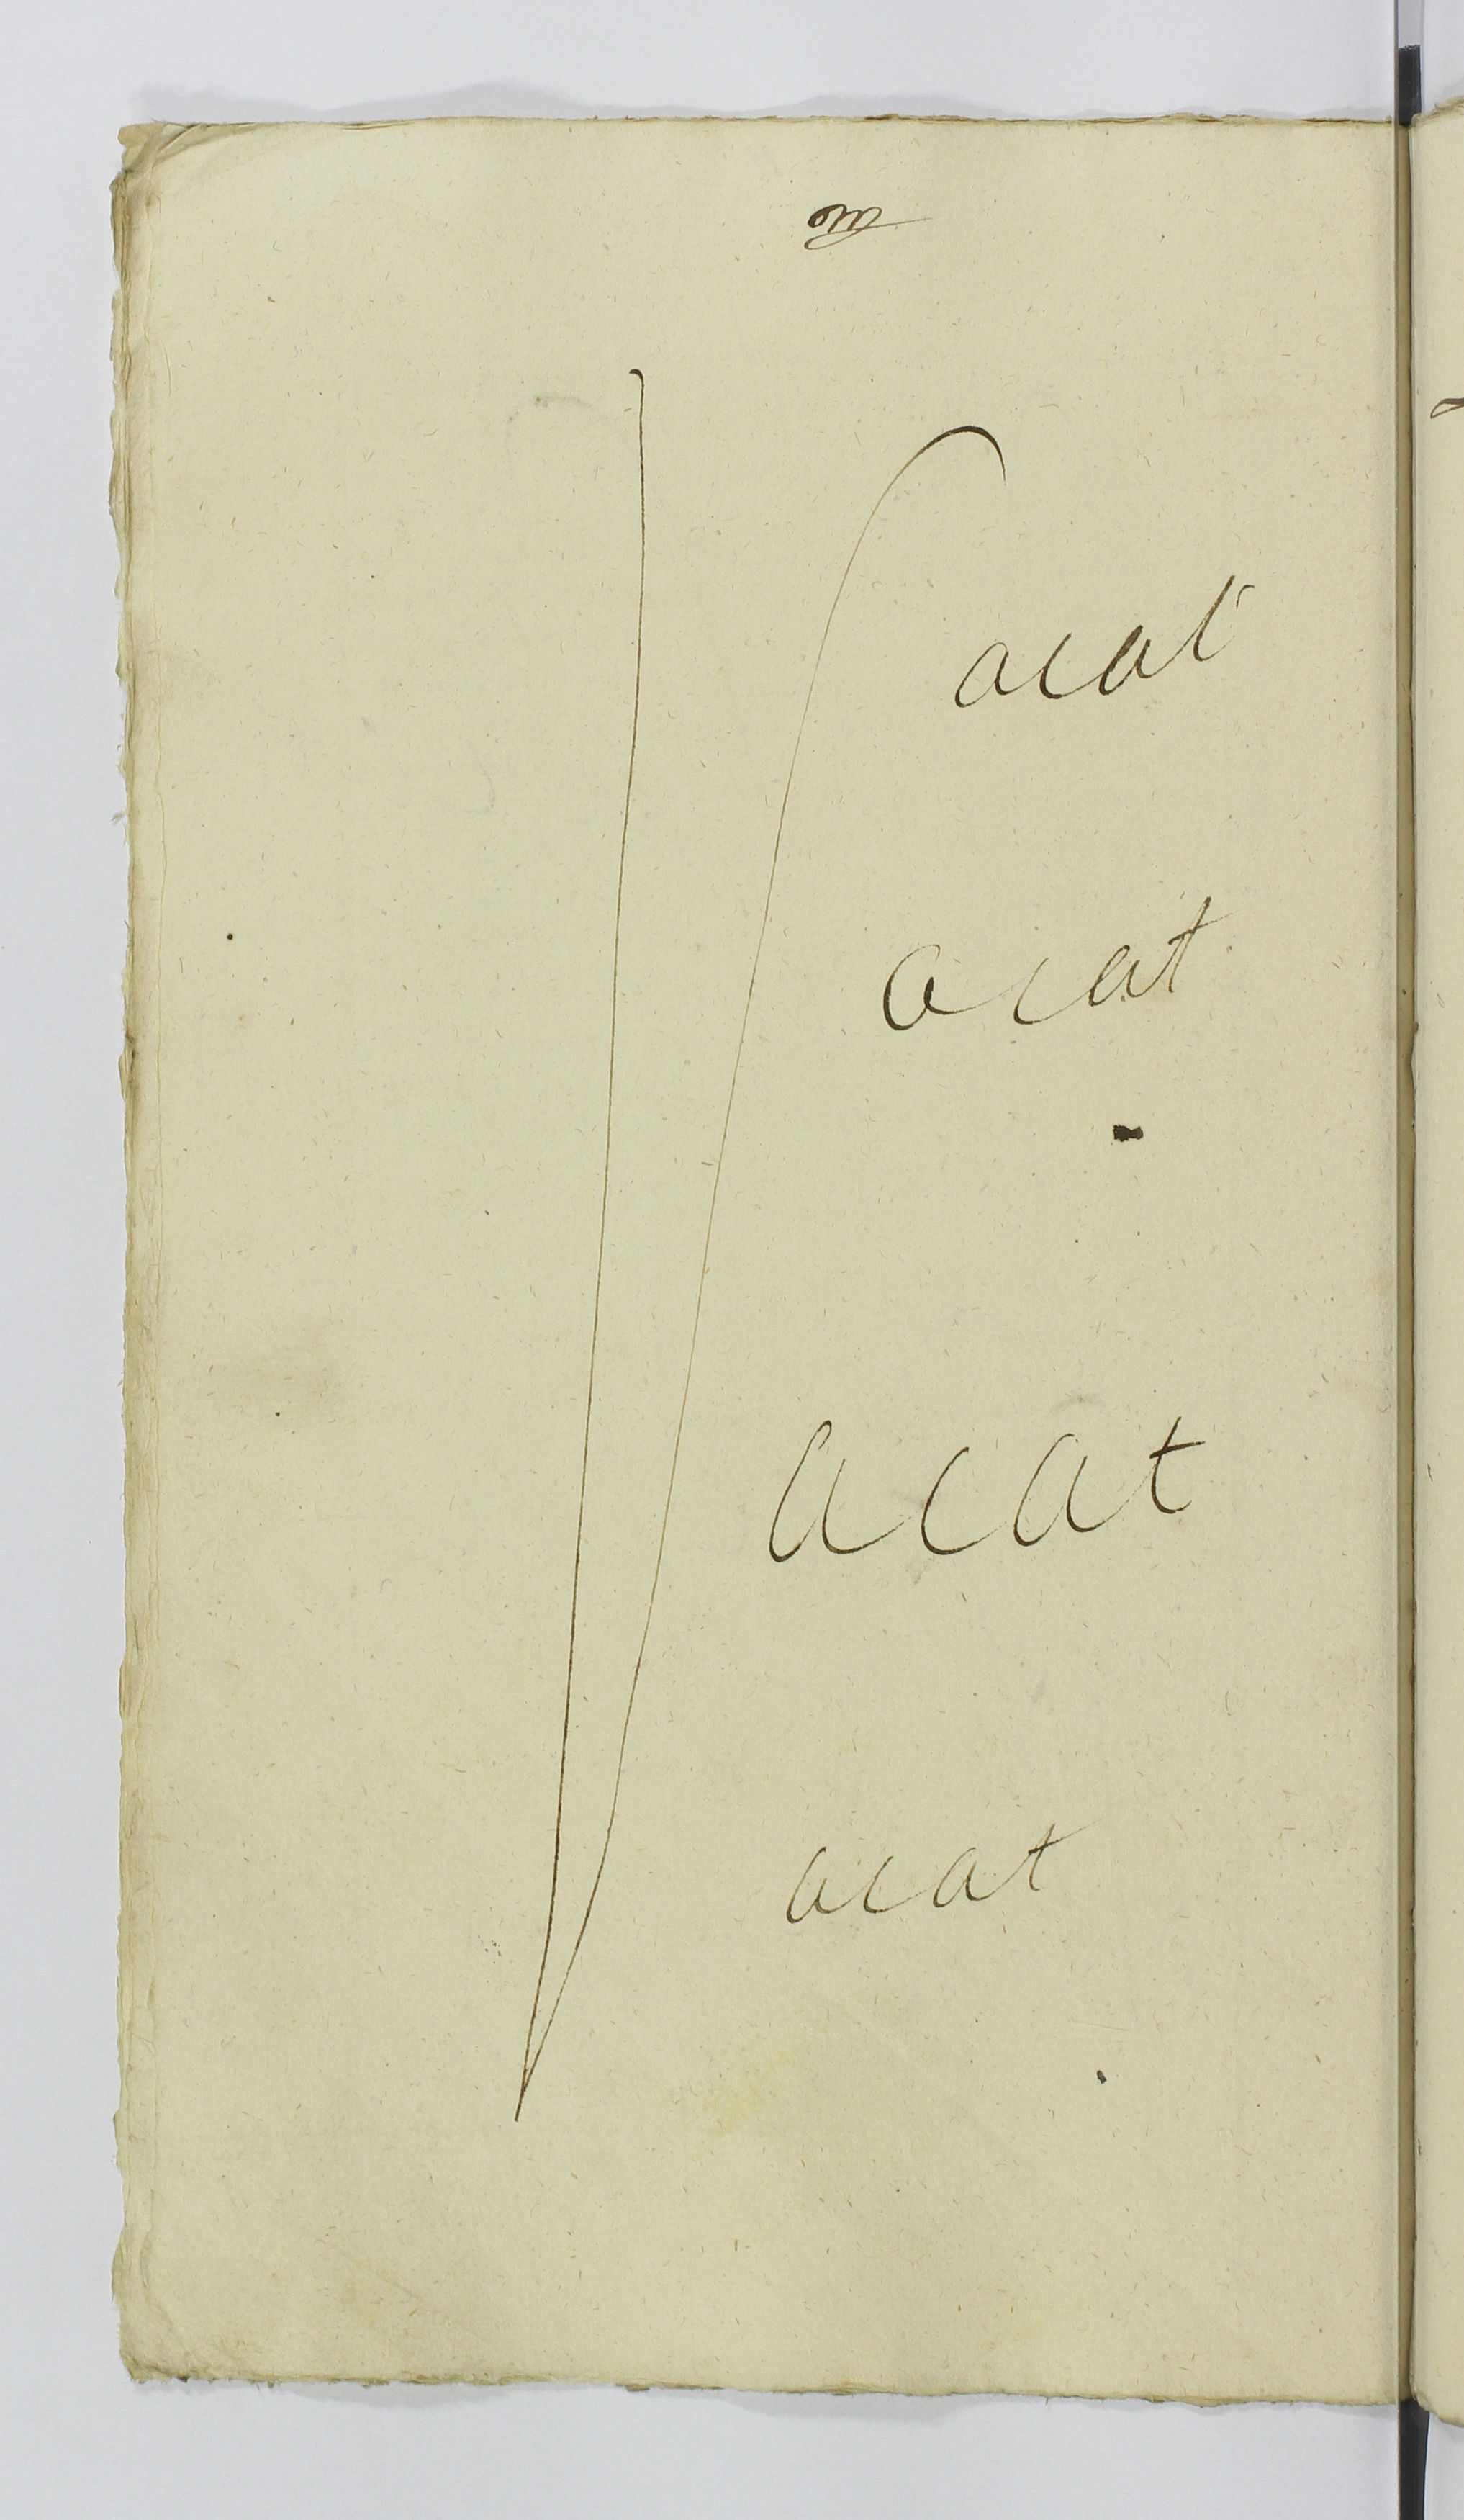 Vacat
acat
acat
acat